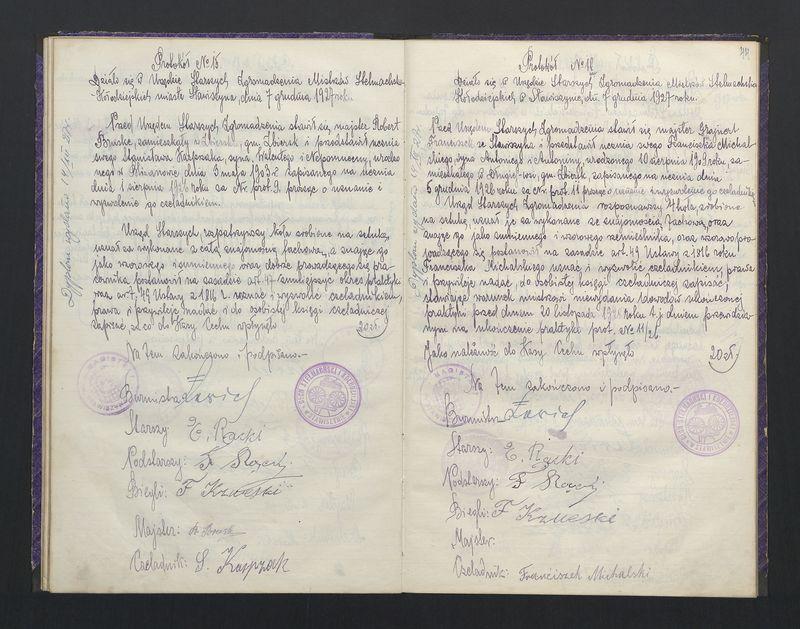 Protokół No 15
Działo się w Urzędzie Starszych Zgromadzenia Mistrzów Stelmachsko-
Kołodziejskich miasta Stawiszyna, dnia 7 grudnia 1927 roku.
Przed Urzędem Starszych Zgromadzenia stawił się majster Robert
zamieszkały w Zbiersku, gm. Zbiersk i przedstawił ucznia
swego Stanisława Kasprzaka, syna Walentego i Nepomuceny, urodzo-
nego w dnia 3 maja 1903 r. zapisanego na ucznia
dnia 1 sierpnia 1926 roku za Nr prot. 9. prosząc o uznanie i
wyzwolenie go czeladnikiem.
Urząd Starszych rozpatrzywszy koła zrobione na sztukę,
uznał za wykonane z całą znajomością fachową, a znając go
jako wzorowego i sumiennego oraz dobrze prowadzącego się pra-
cownika postanowił na zasadzie art. 47 zmniejszyć okres praktyki
oraz art. 49 Ustawy z 1816 r. uznać i wyzwolić czeladnikiem,
prawa i przywileje nadać i do osobistej księgi czeladniczej
zapisać za co do Kasy Cechu wpłynęło 20 zł.
Na tem zakończono i podpisano.-
Dyplom wydano 14/XII 27 r.
Burmistrz
Starszy E. Rącki
Podstarszy: F
Biegli: F
Majster:
Czeladnik: S. Kasprzak
77
Protokół No 16
Działo się w Urzędzie Starszych Zgromadzenia Mistrzów Stelmachsko-
Kołodziejskich w Stawiszynie, dn. 7 grudnia 1927 roku.
Przed Urzędem Starszych Zgromadzenia stawił się majster Grajnert
Franciszek ze Stawiszyna i przedstawił ucznia swego Franciszka Michal-
skiego, syna Antoniego i Antoniny, urodzonego 10 sierpnia 1903 roku, za-
mieszkałego w gm. Zbiersk, zapisanego na ucznia dnia
6 grudnia 1926 roku za Nr prot. 11 prosząc o uznanie i wyzwolenie go czeladnikiem
Urząd Starszych Zgromadzenia rozpoznawszy koła zrobione
na sztukę, uznał je za wykonane ze znajomością fachową, oraz
znając go jako sumiennego i wzorowego rzemieślnika, oraz wzorowo pro-
wadzącego się, postanowił na zasadzie art. 49 Ustawy z 1816 roku
Franciszka Michalskiego uznać i wyzwolić czeladnikiem, prawa
i przywileje nadać, do osobistej księgi czeladniczej zapisać,
stawiając warunek mistrzowi niewydania dowodów ukończonej
praktyki przed dniem 20 listopada 1928 roku t.j. dniem przewidzia-
nym na ukończenie praktyki prot. No 11/26.
Jako należność do Kasy Cechu wpłynęło 20 zł.
Na tem zakończono i podpisano.-
Burmistrz
Starszy: E. Rącki
Podstarszy: F
Biegli: F
Majster:
Czeladnik: Franciszek Michalski